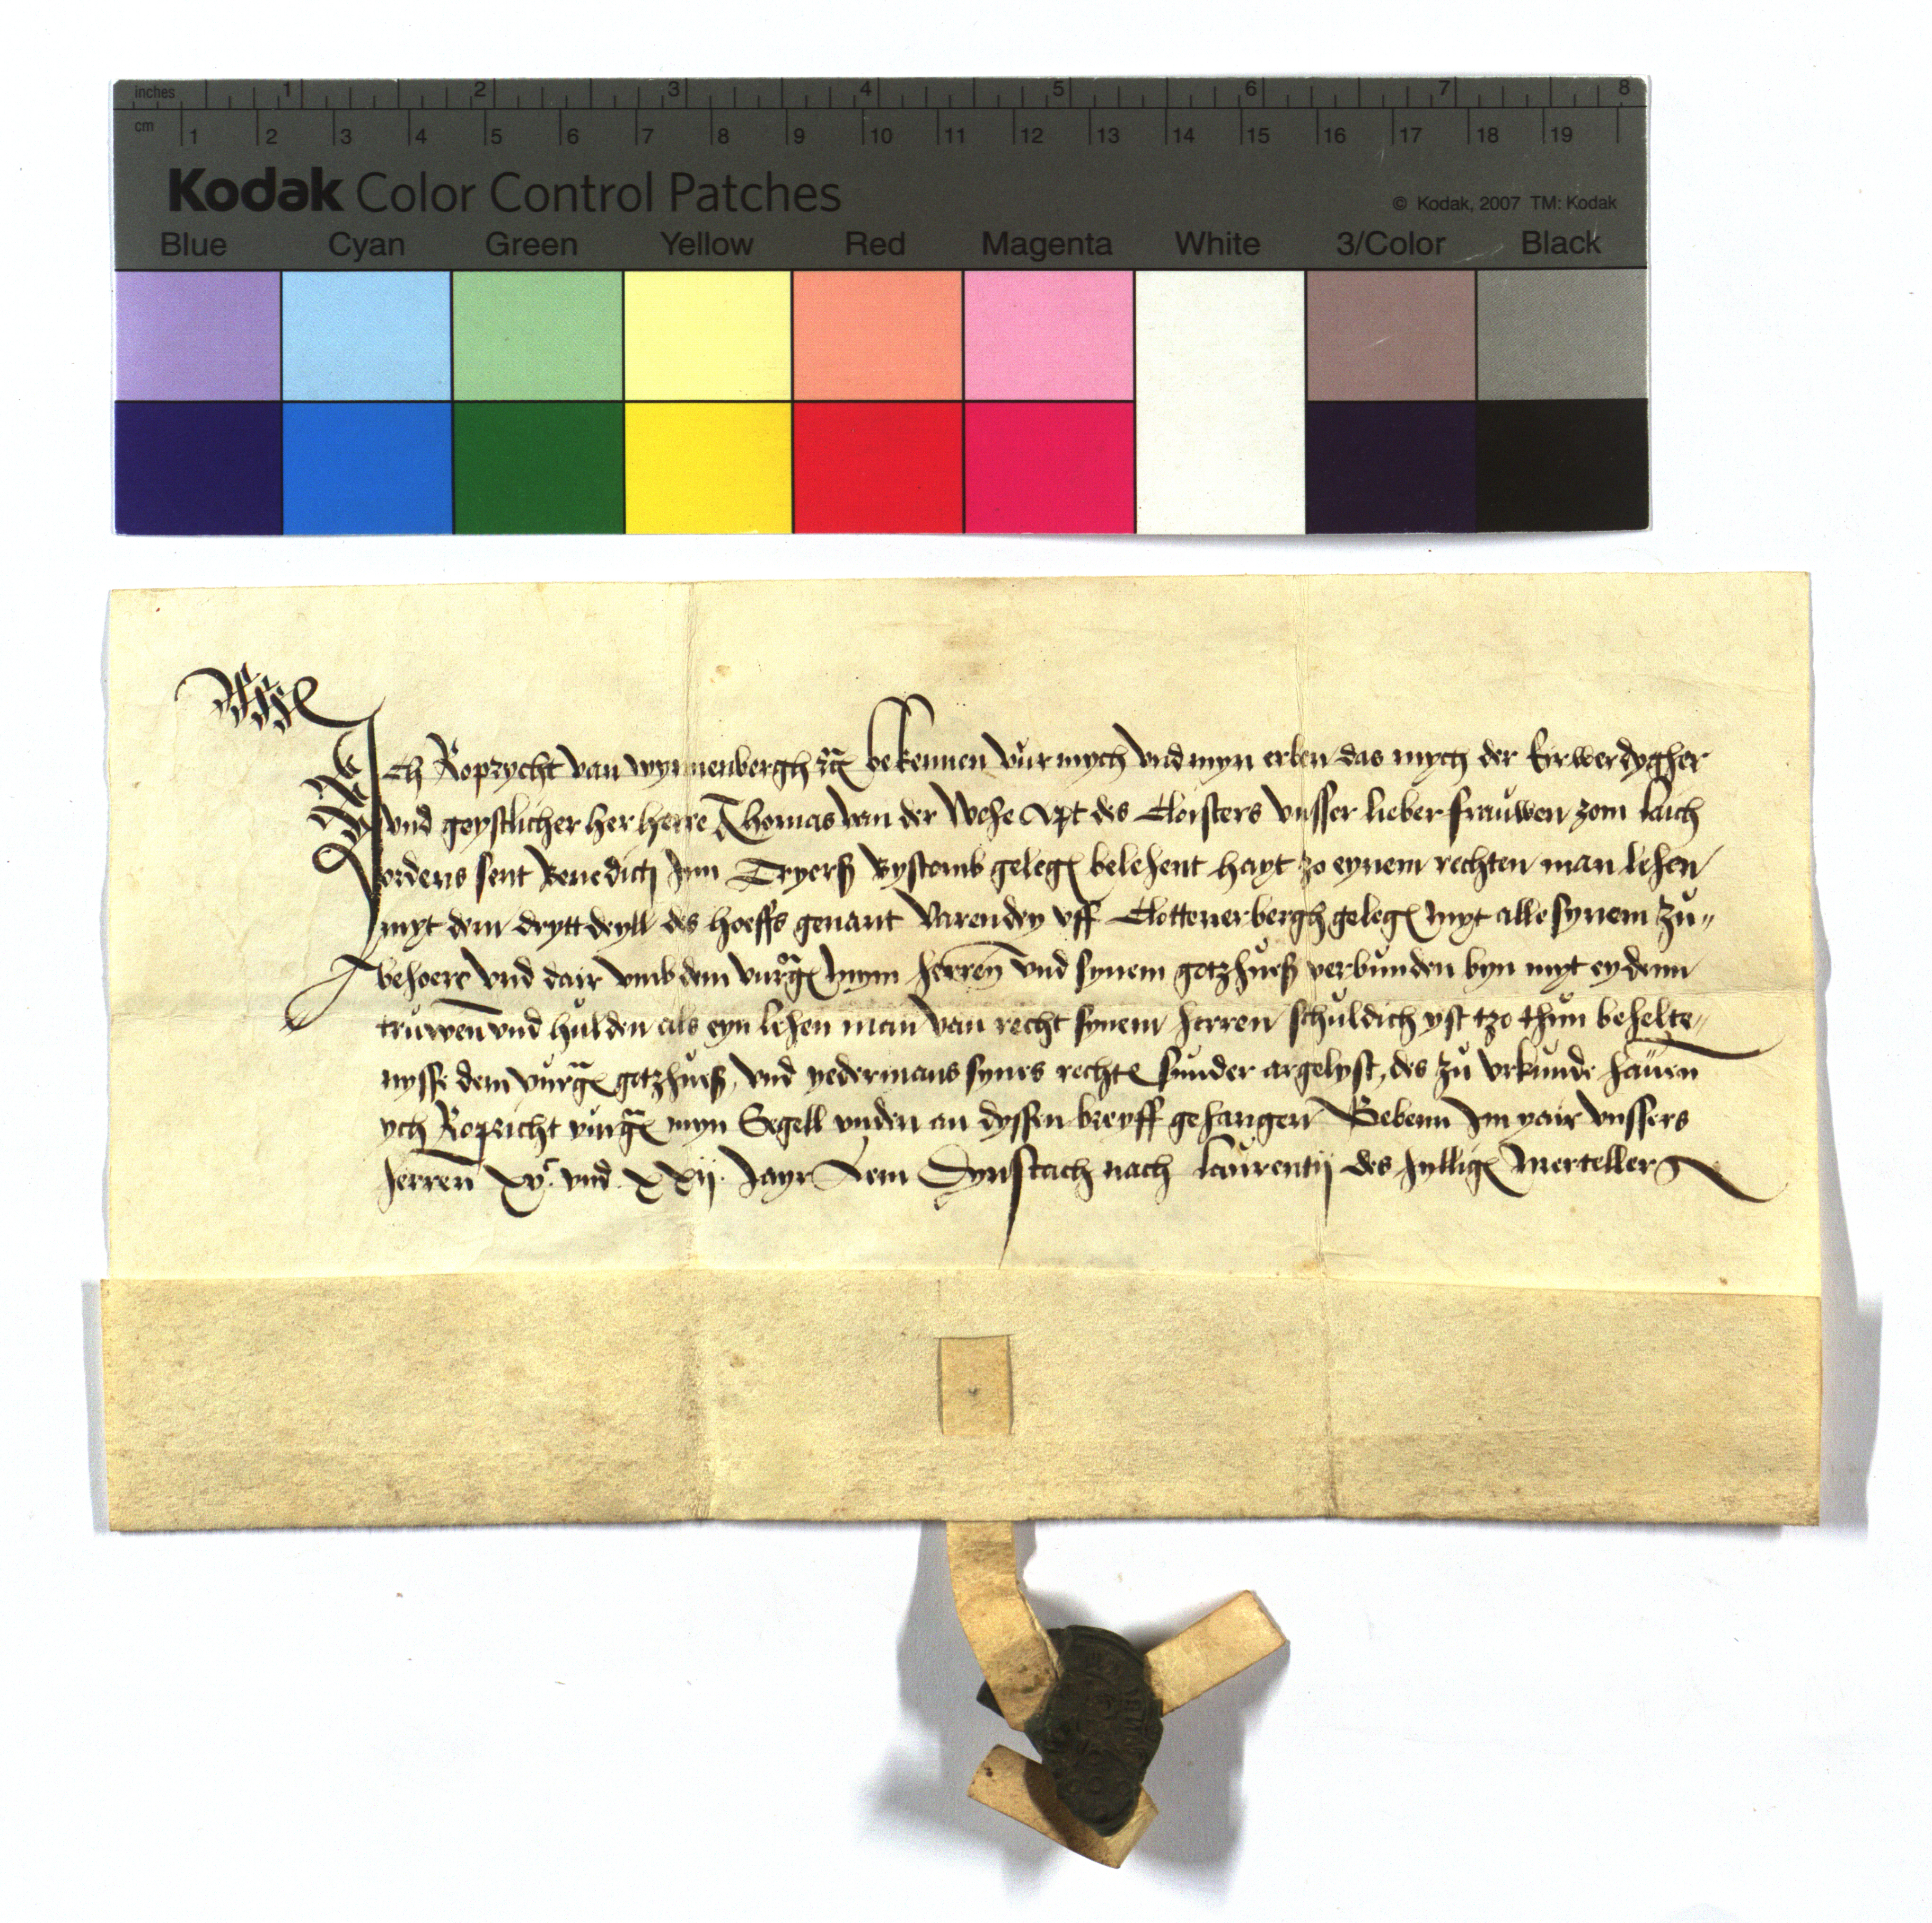 inches 1 2 3 4 5 6 7 8
cm 1 2 3 4 5 6 7 8 9 10 11 12 13 14 15 16 17 18 19
Kodak Color Control Patches
© Kodak, 2007 TM: Kodak
Blue Cyan Green Yellow Red Magenta White 3/Color Black
Ich Roprycht van wynnenbergh bekennen vur mych vnd myn erben das mych der Erwerdygher
vnd geystlicher her herre Thomas van der Apt des Cloisters vnsser lieber frauwen zom laich
ordens sent Benedicti Inn Tryerß Bystomb geleg belehent hayt zo eynem rechten man lehen
myt dem drytt deyll des hoeffs genant Varendey vff Clottenerbergh geleg myt alle synem zu„
behoere vnd dair vmb dem vurg mym herren vnd synem gotzhueß verbunden byn myt eydenn
truwen vnd hulden als eyn lehen man van recht synem herren schuldich yst tzo thun behelte„
nysse dem vurg gotzhueß, vnd yedermans synes recht sunder argelyst, des zu vrkunde hauen
ych Ropricht vurg myn Segell vnden an dyssen breyff gehangen Gebenn Im yair vnssers
herren xvc vnd xxij Jayr Dynstach nach laurentij des hyllig Merteller